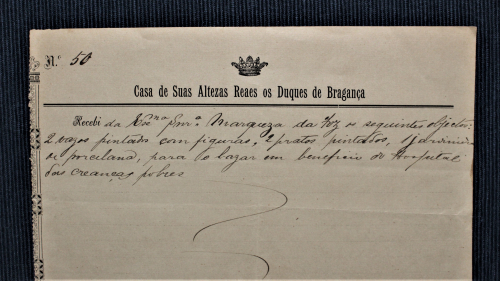 N.º 50
Casa de Suas Altezas Reaes os Duques de Bragança
Recebi da Exma Snr.ª Marqueza da Foz os seguintes objectos:
2 vazos pintados com figuras, 2 pratos pintados,
de porcelana, para o bazar em beneficio do Hospital
das creanças pobres